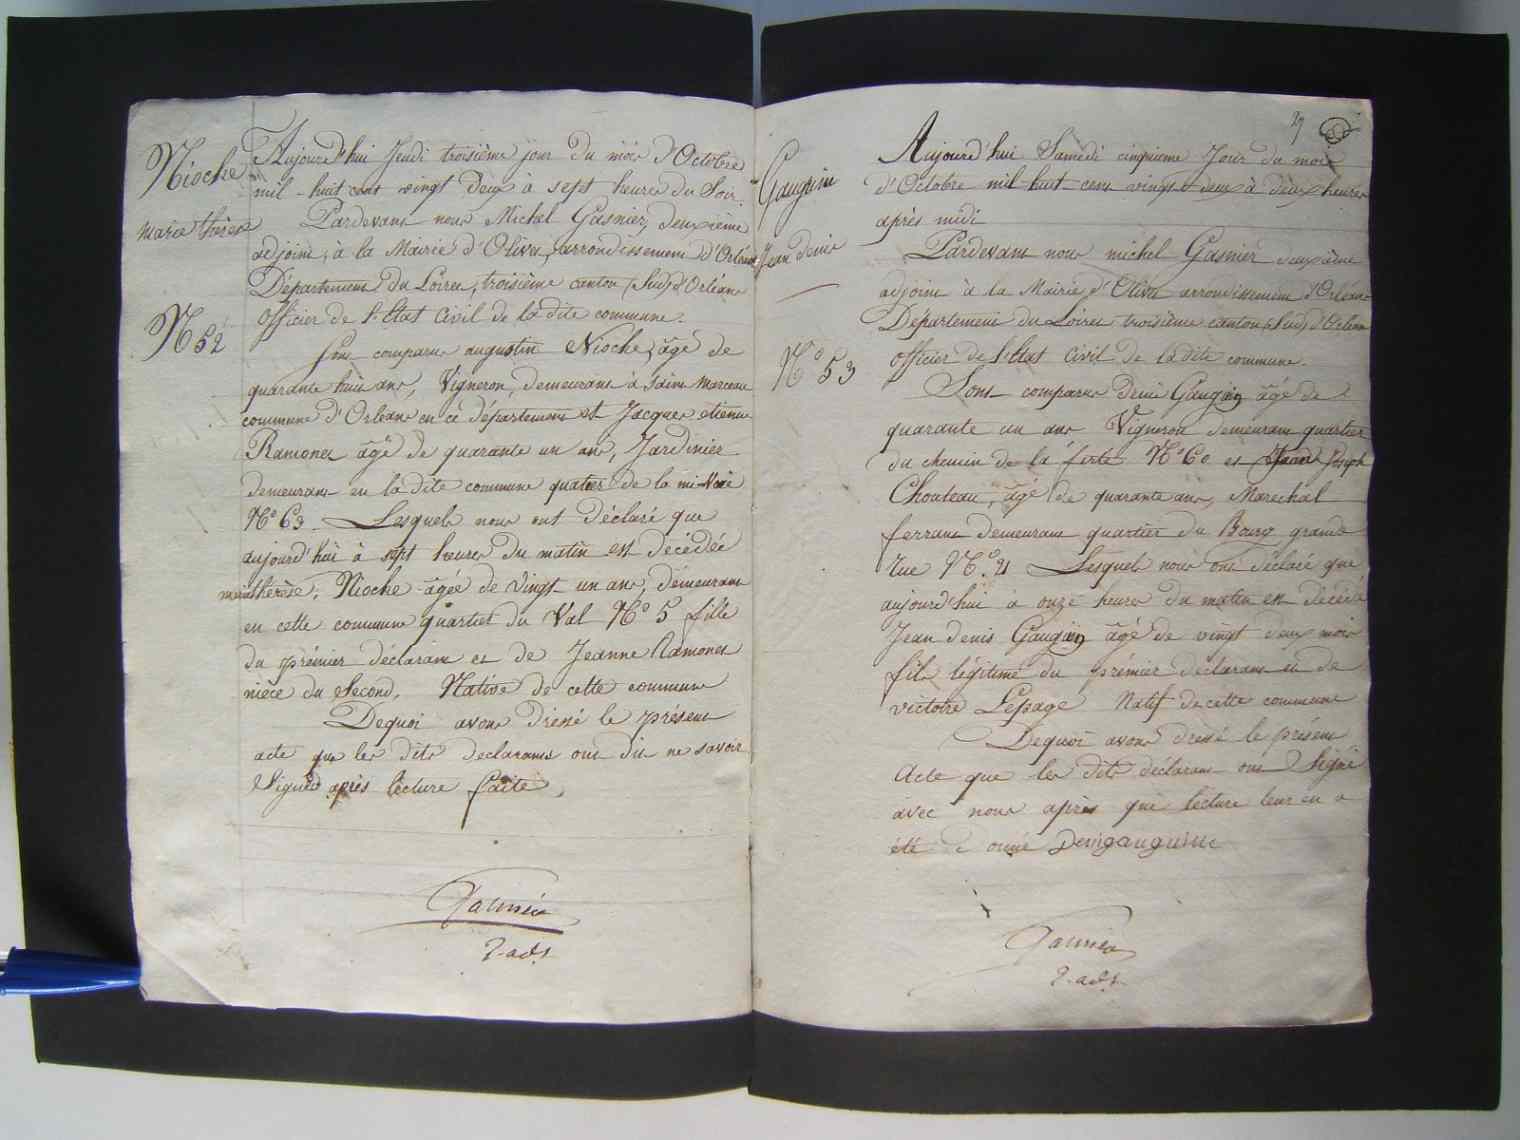 Nioche
marie thérèse
N° 52
Aujourd'hui Jeudi troisième jour du mois d'Octobre
mil-huit cent vingt deux à sept heures du Soir.
Pardevant nous Michel Gasnier, deuxième
adjoint, à la Mairie d'Olivet, arrondissement d'Orléans
Département du Loiret, troisième canton (Sud) d'Orléans
Officier de l'Etat Civil de la dite commune.
Sont comparus augustin Nioche, âgé de
quarante huit ans, Vigneron, demeurant à saint Marceau
commune d'Orléans en ce département et Jacques etienne
Ramonet âgé de quarante un ans, Jardinier
demeurant en la dite commune quatier de la mi-Voie
N° 63. Lesquels nous ont déclaré que
aujourd'hui à sept heures du matin est décédée
marie thérèse Nioche âgée de Vingt un ans, demeurant
en cette commune quartier du Val N° 5 fille
du prémier déclarant et de Jeanne Ramonet
nièce du Second. Native de cette commune
Dequoi avons dressé le présent
acte que les dits declarants ont dit ne savoir
Signer après lecture faite.
Gasnier
2. adjt
29
Gauguin
Jean denis
N° 53
Aujourd'hui Samedi cinquieme Jour du mois
d'Octobre mil huit cens vingt deux à deux heures
après midi
Pardevant nous michel Gasnier deuxième
adjoint à la Mairie d'Olivet arrondissement d'Orléans
Département du Loiret troisième canton (Sud) d'Orléans
officier de l'Etat Civil de la dite commune.
Sont comparus Denis Gaugain âgé de
quarante un ans Vigneron demeurant quartier
du chemin de la ferté N° 60 et Jean Joseph
Chouteau, âgé de quarante ans, Marechal
ferrant demeurant quartier du Bourg grande
rue N° 21 Lesquels nous ont déclaré que
aujourd'hui à onze heures du matin est décédé
Jean denis Gaugain âgé de vingt deux mois
fils légitime du prémier déclarant et de
victoire Lepage Natif de cette commune
Dequoi avons dressé le présent
Acte que les dits déclarant ont Signé
avec nous après que lecture leur en a
été donné Denigauguin
Gasnier
2. adjt